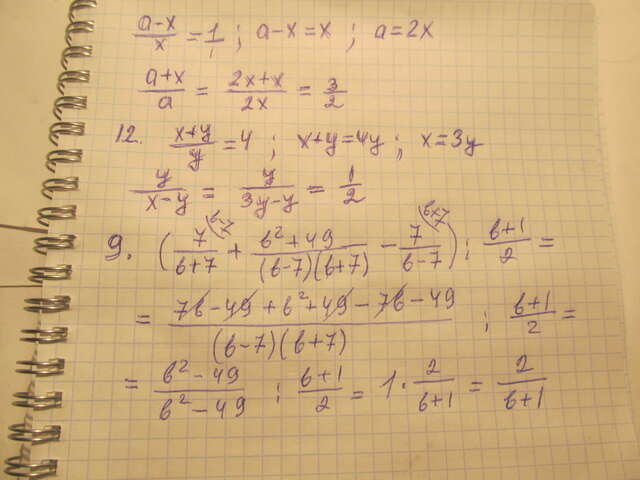 (a-x)/x = 1/1 ; a-x = x ; a = 2x
(a+x)/a = (2x+x)/2x = 3/2
12. (x+y)/y = 4 ; x+y = 4y ; x = 3y
y/(x-y) = y/(3y-y) = 1/2
9. (7^(в-7)/(в+7) + (в²+49)/((в-7)(в+7)) - 7^(в+7)/(в-7)) ; (в+1)/2 =
= (7в-49+в²+49-7в-49)/((в-7)(в+7)) ; (в+1)/2 =
= (в²-49)/(в²-49) ; (в+1)/2 = 1 · 2/(в+1) = 2/(в+1)